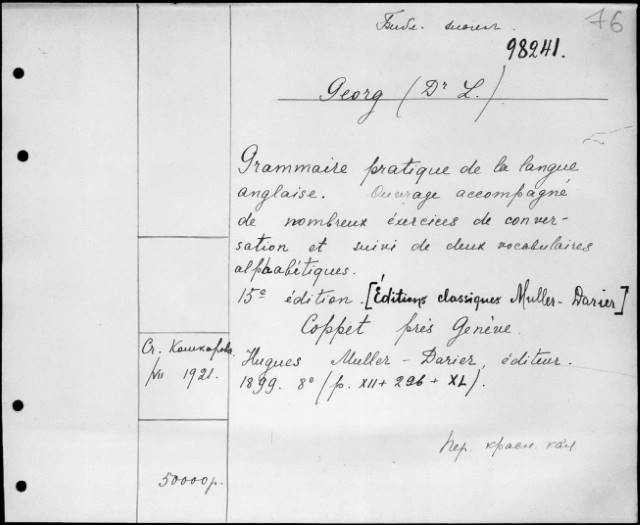 76
98241.
Georg (Dr L.)
Grammaire pratique de la langue
anglaise. Ouvrage accompagné
de nombreux éxercices de conver-
sation et suivi de deux vocabulaires
alphabétiques.
15e édition. [Éditions classiques Muller-Darier]
Coppet près Genève.
Hugues Muller-Darier, éditeur.
1899. 8° (p. XII + 296 + XL).
Ст. Кошкарова.
VII 1921.
50000р.
пер. красн. кол.